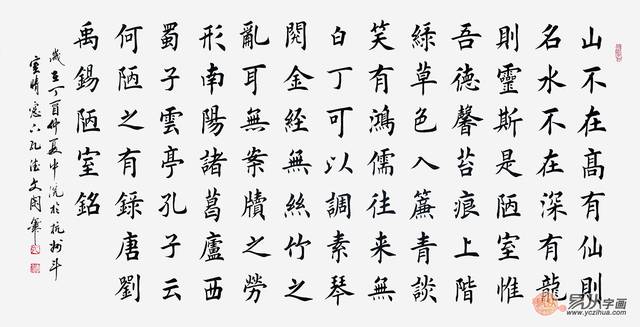 山不在髙有仙則
名水不在深有龍
則靈斯是陋室惟
吾德馨苔痕上階
綠草色入簾青談
笑有鴻儒往来無
白丁可以調素琴
閱金經無絲竹之
亂耳無案牘之勞
形南陽諸葛廬西
蜀子雲亭孔子云
何陋之有錄唐劉
禹錫陋室銘
歲在丁酉仲夏中浣於杭州斗
室晴窓
易从字画
www.yczihua.com